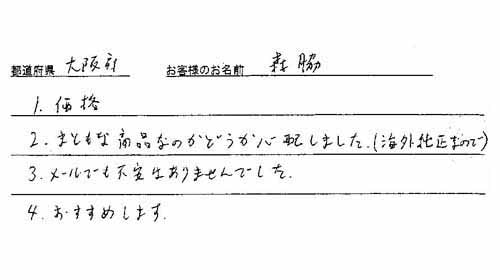 都道府県 大阪府 お客様のお名前 森脇
1. 価格
2. まともな商品なのかどうか心配しました.(海外純正なので)
3. メールでも不安はありませんでした.
4. おすすめします.